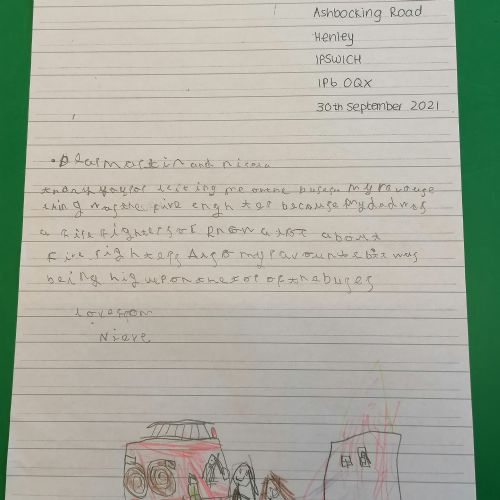 Ashbocking Road
Henley
IPSWICH
IP6 0QX
30th September 2021
Dear Martin and nicola
thank you for letting me on the buses my favouge
thing was the fire enghtes because my dad was
a fire fighter so I know a lot about
fire fighters Also my favounte bit was
being hig upon the top of the buses
love from
Nieve